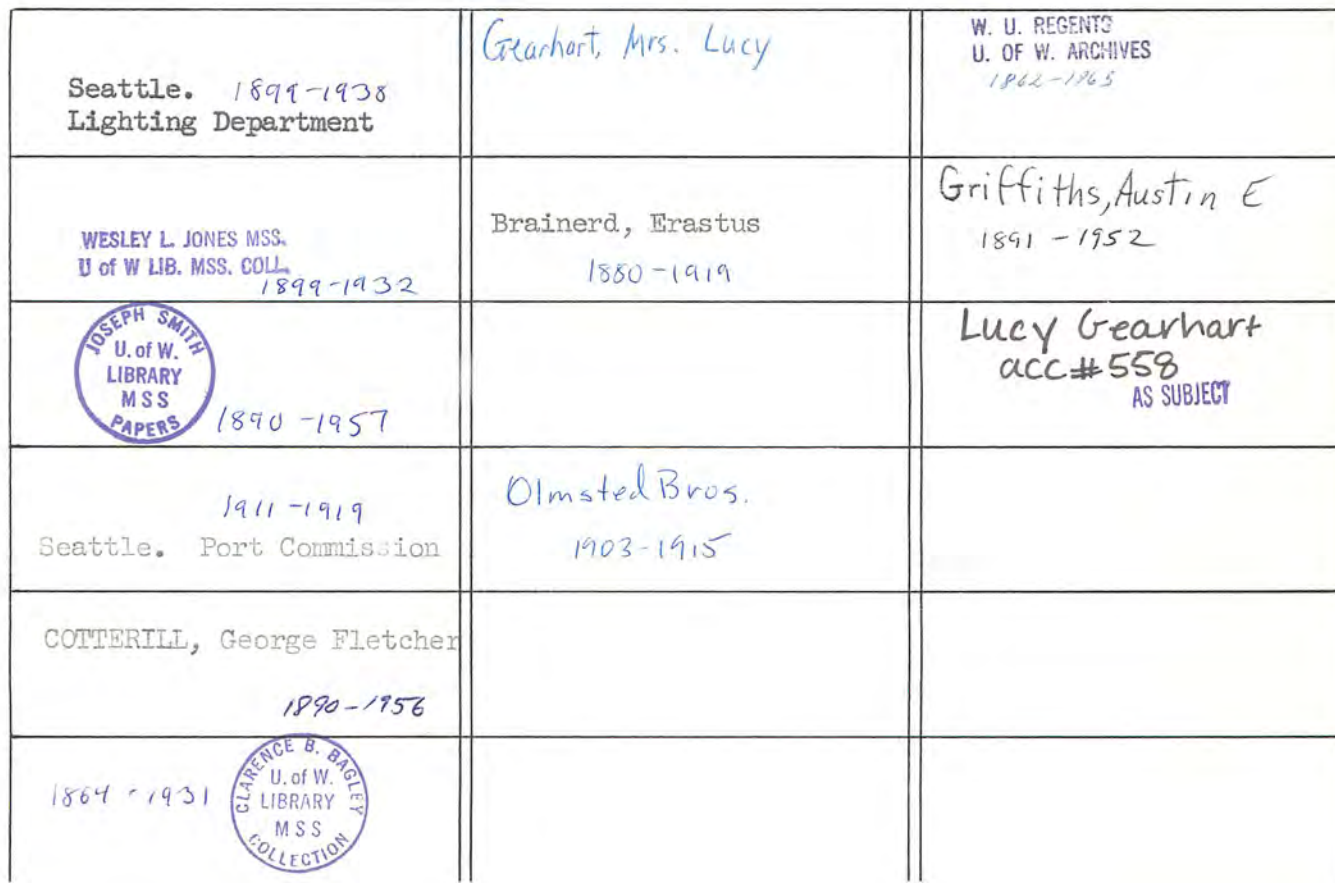 Seattle. 1899-1938
Lighting Department
Gearhart, Mrs. Lucy
W. U. REGENTS
U. OF W. ARCHIVES
1862-1865
WESLEY L. JONES MSS.
U of W LIB. MSS. COLL.
1899-1932
Brainerd, Erastus
1880-1919
Griffiths, Austin E
1891-1952
JOSEPH SMITH
U. of W.
LIBRARY
MSS
PAPERS
1890-1957
Lucy Gearhart
acc#558
AS SUBJECT
1911-1919
Seattle. Port Commission
Olmsted Bros.
1903-1915
COTTERILL, George Fletcher
1890-1956
1864-1931
CLARENCE B. BAGLEY
U. of W.
LIBRARY
MSS
COLLECTION